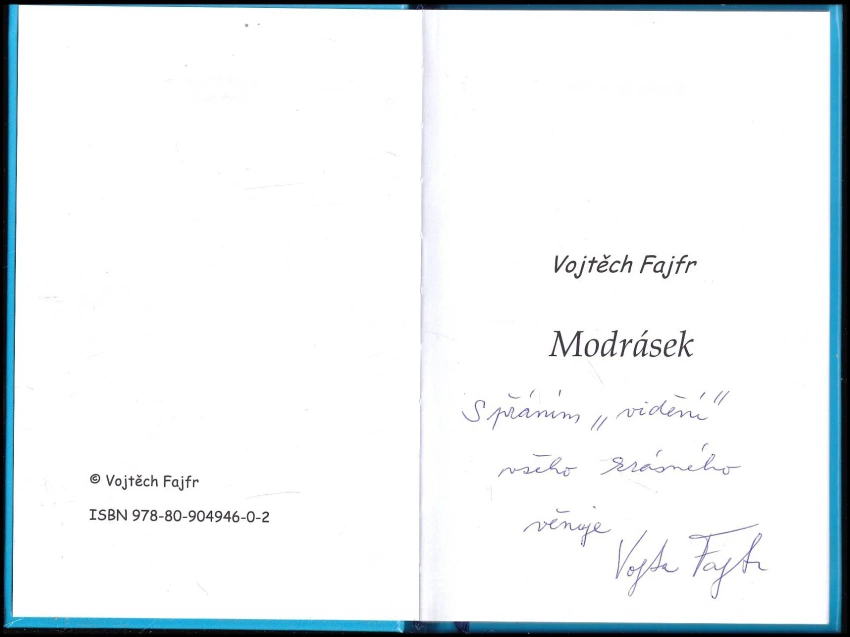 © Vojtěch Fajfr
ISBN 978-80-904946-0-2
Vojtěch Fajfr
Modrásek
S přáním „vidění"
všeho krásného
věnuje
Vojta Fajfr